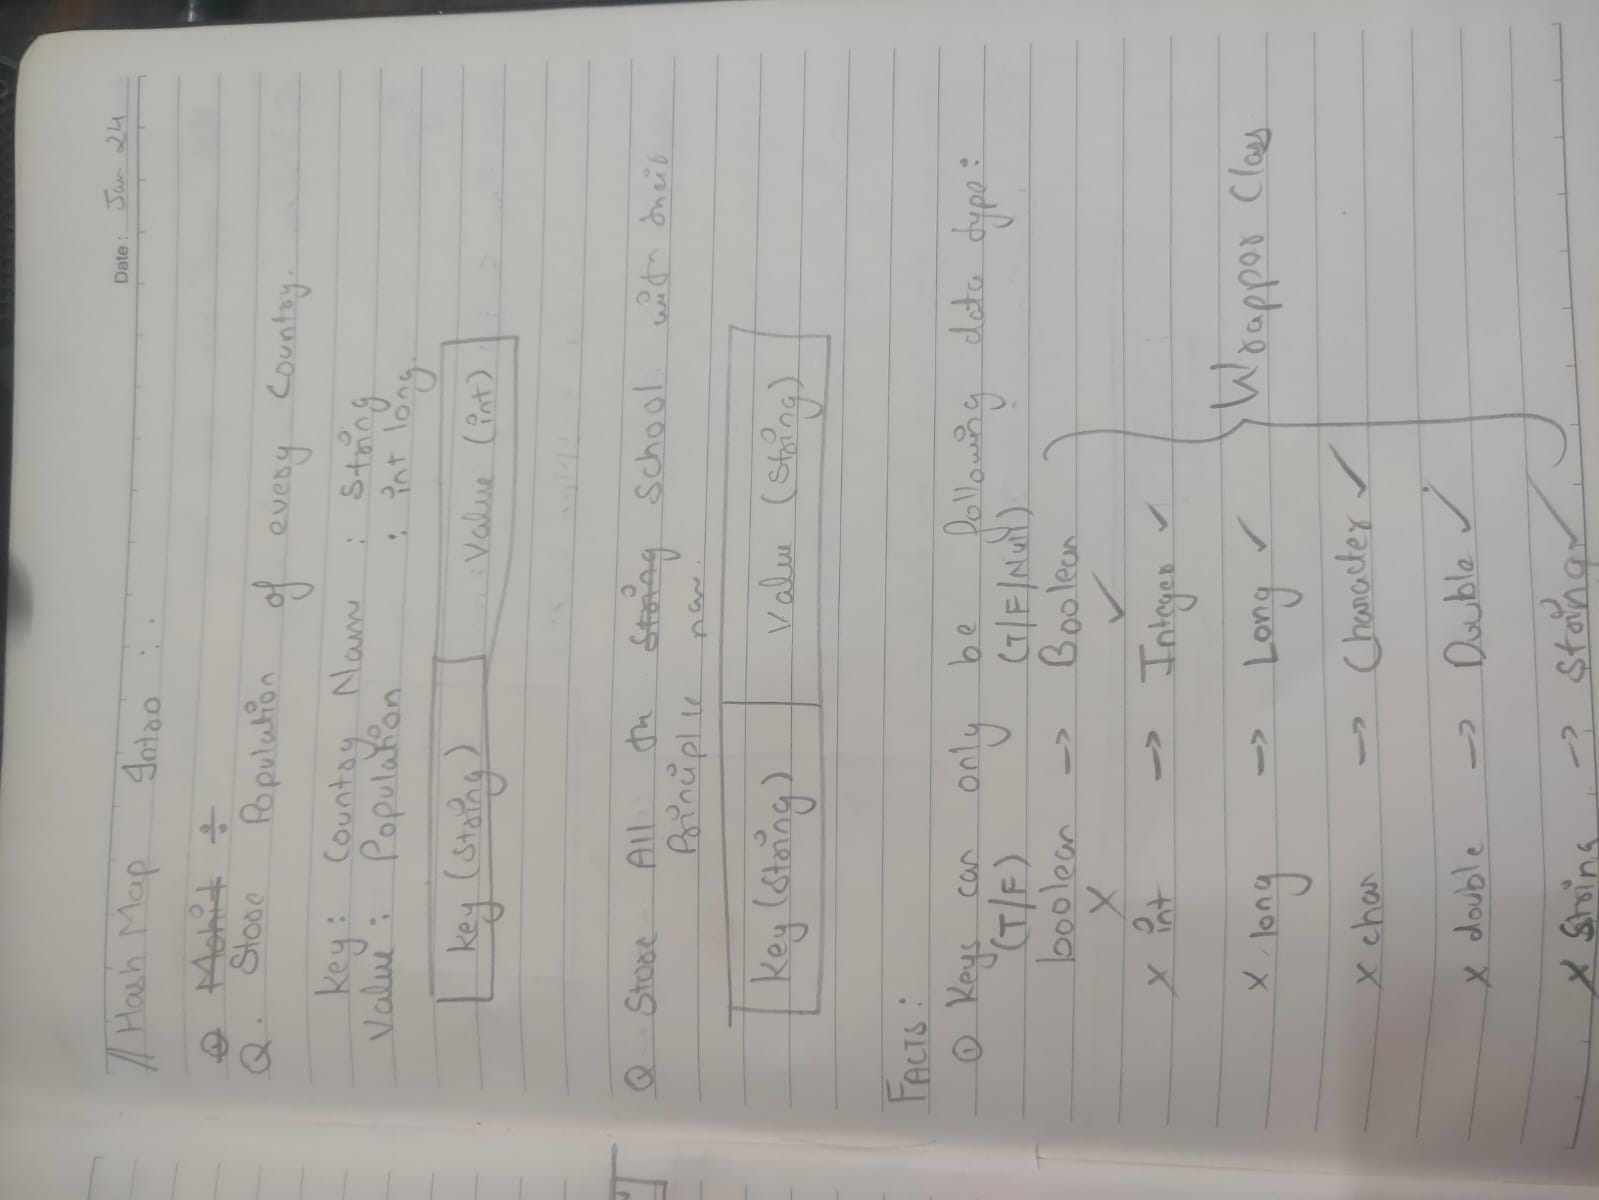 Date: Jan 24
// Hash Map Intro :
① Mohit ÷
Q. Store Population of every Country.
key: Country Nam : string
Value: Population : int long.
key (string) Value (int)
Q Store All the string School with their
Principle nam.
key (string) Value (string)
FACTS:
① Keys can only be following data type:
(T/F) (T/F/Null)
boolean -> Boolean ✓
X
X int -> Integer ✓
X long -> Long ✓
X char -> Character ✓
X double -> Double ✓
X string -> string ✓
Wrappar Class